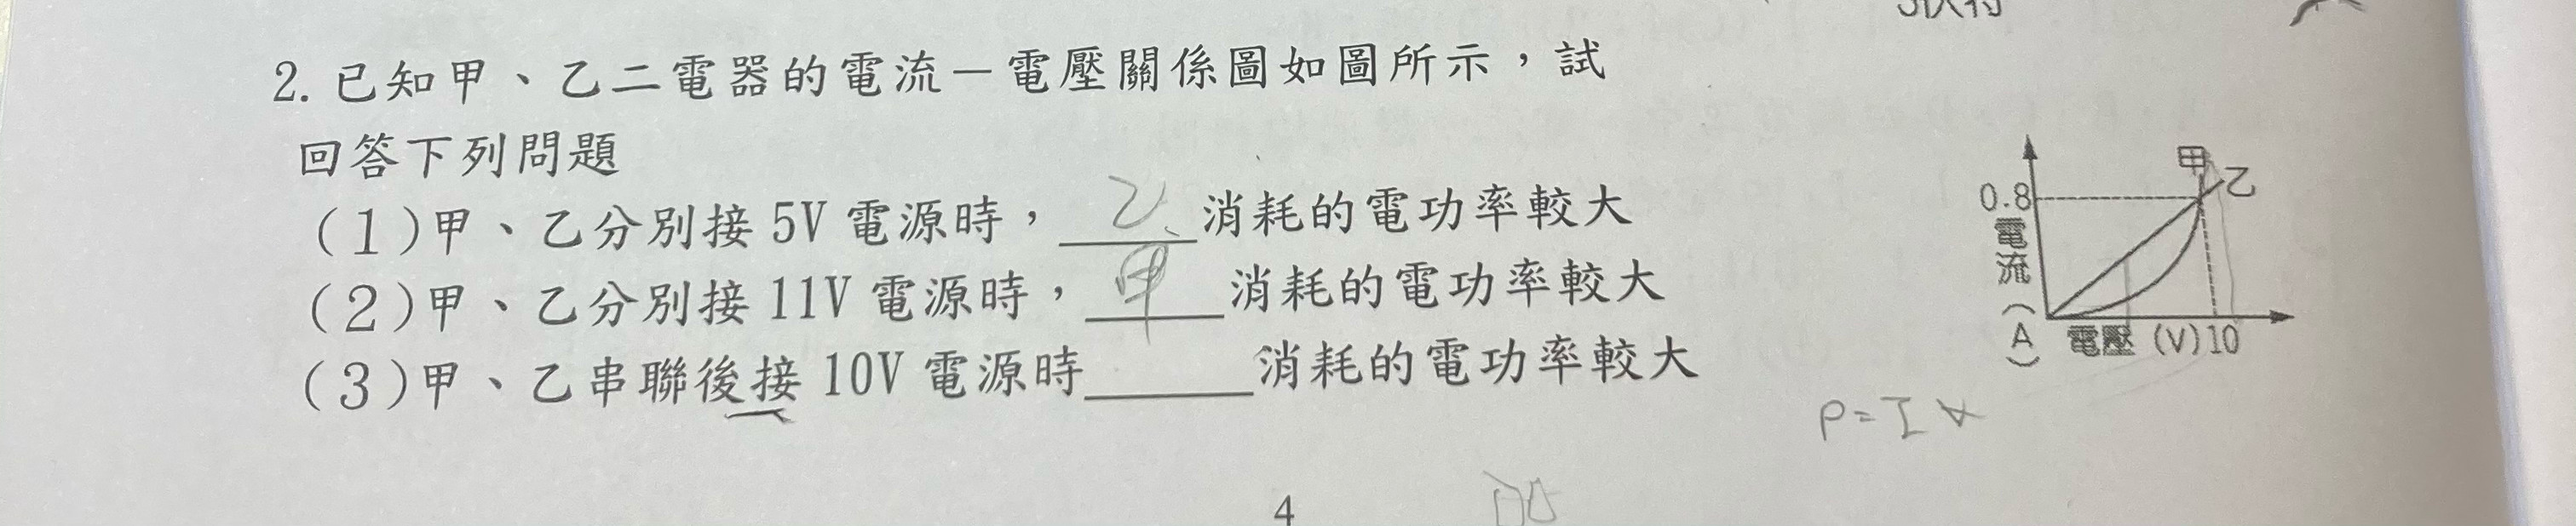 2. 已知甲、乙二電器的電流－電壓關係圖如圖所示，試
回答下列問題
(1)甲、乙分別接 5V 電源時，乙消耗的電功率較大
(2)甲、乙分別接 11V 電源時，甲消耗的電功率較大
(3)甲、乙串聯後接 10V 電源時______消耗的電功率較大
甲
乙
0.8
電流(A)
電壓 (V)10
P=IV
4